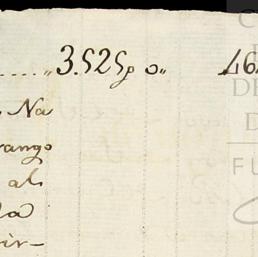 ....." 3.525p o" 464
Na
ango
al
da
vir-
C
DE
D
FU